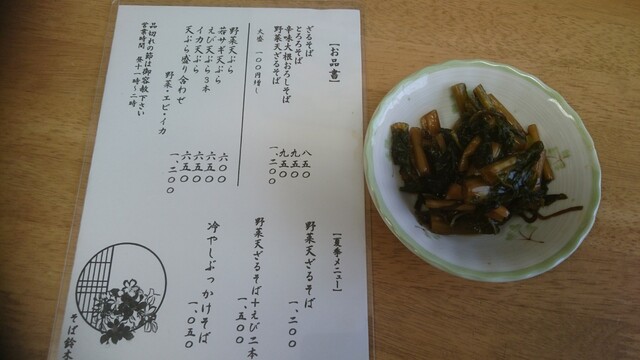 【お品書】
ざるそば 八五〇
とろろそば 九五〇
辛味大根おろしそば 九五〇
野菜天ざるそば 一、二〇〇
大盛 一〇〇円増し
野菜天ぷら 六〇〇
若サギ天ぷら 六五〇
えび天ぷら3本 六五〇
イカ天ぷら 六五〇
天ぷら盛り合わせ 一、二〇〇
野菜・エビ・イカ
品切れの節は御容赦下さい
営業時間 昼十一時〜二時
【夏季メニュー】
野菜天ざるそば 一、二〇〇
野菜天ざるそば+えび二本 一、五〇〇
冷やしぶっかけそば 一、〇五〇
そば鈴木